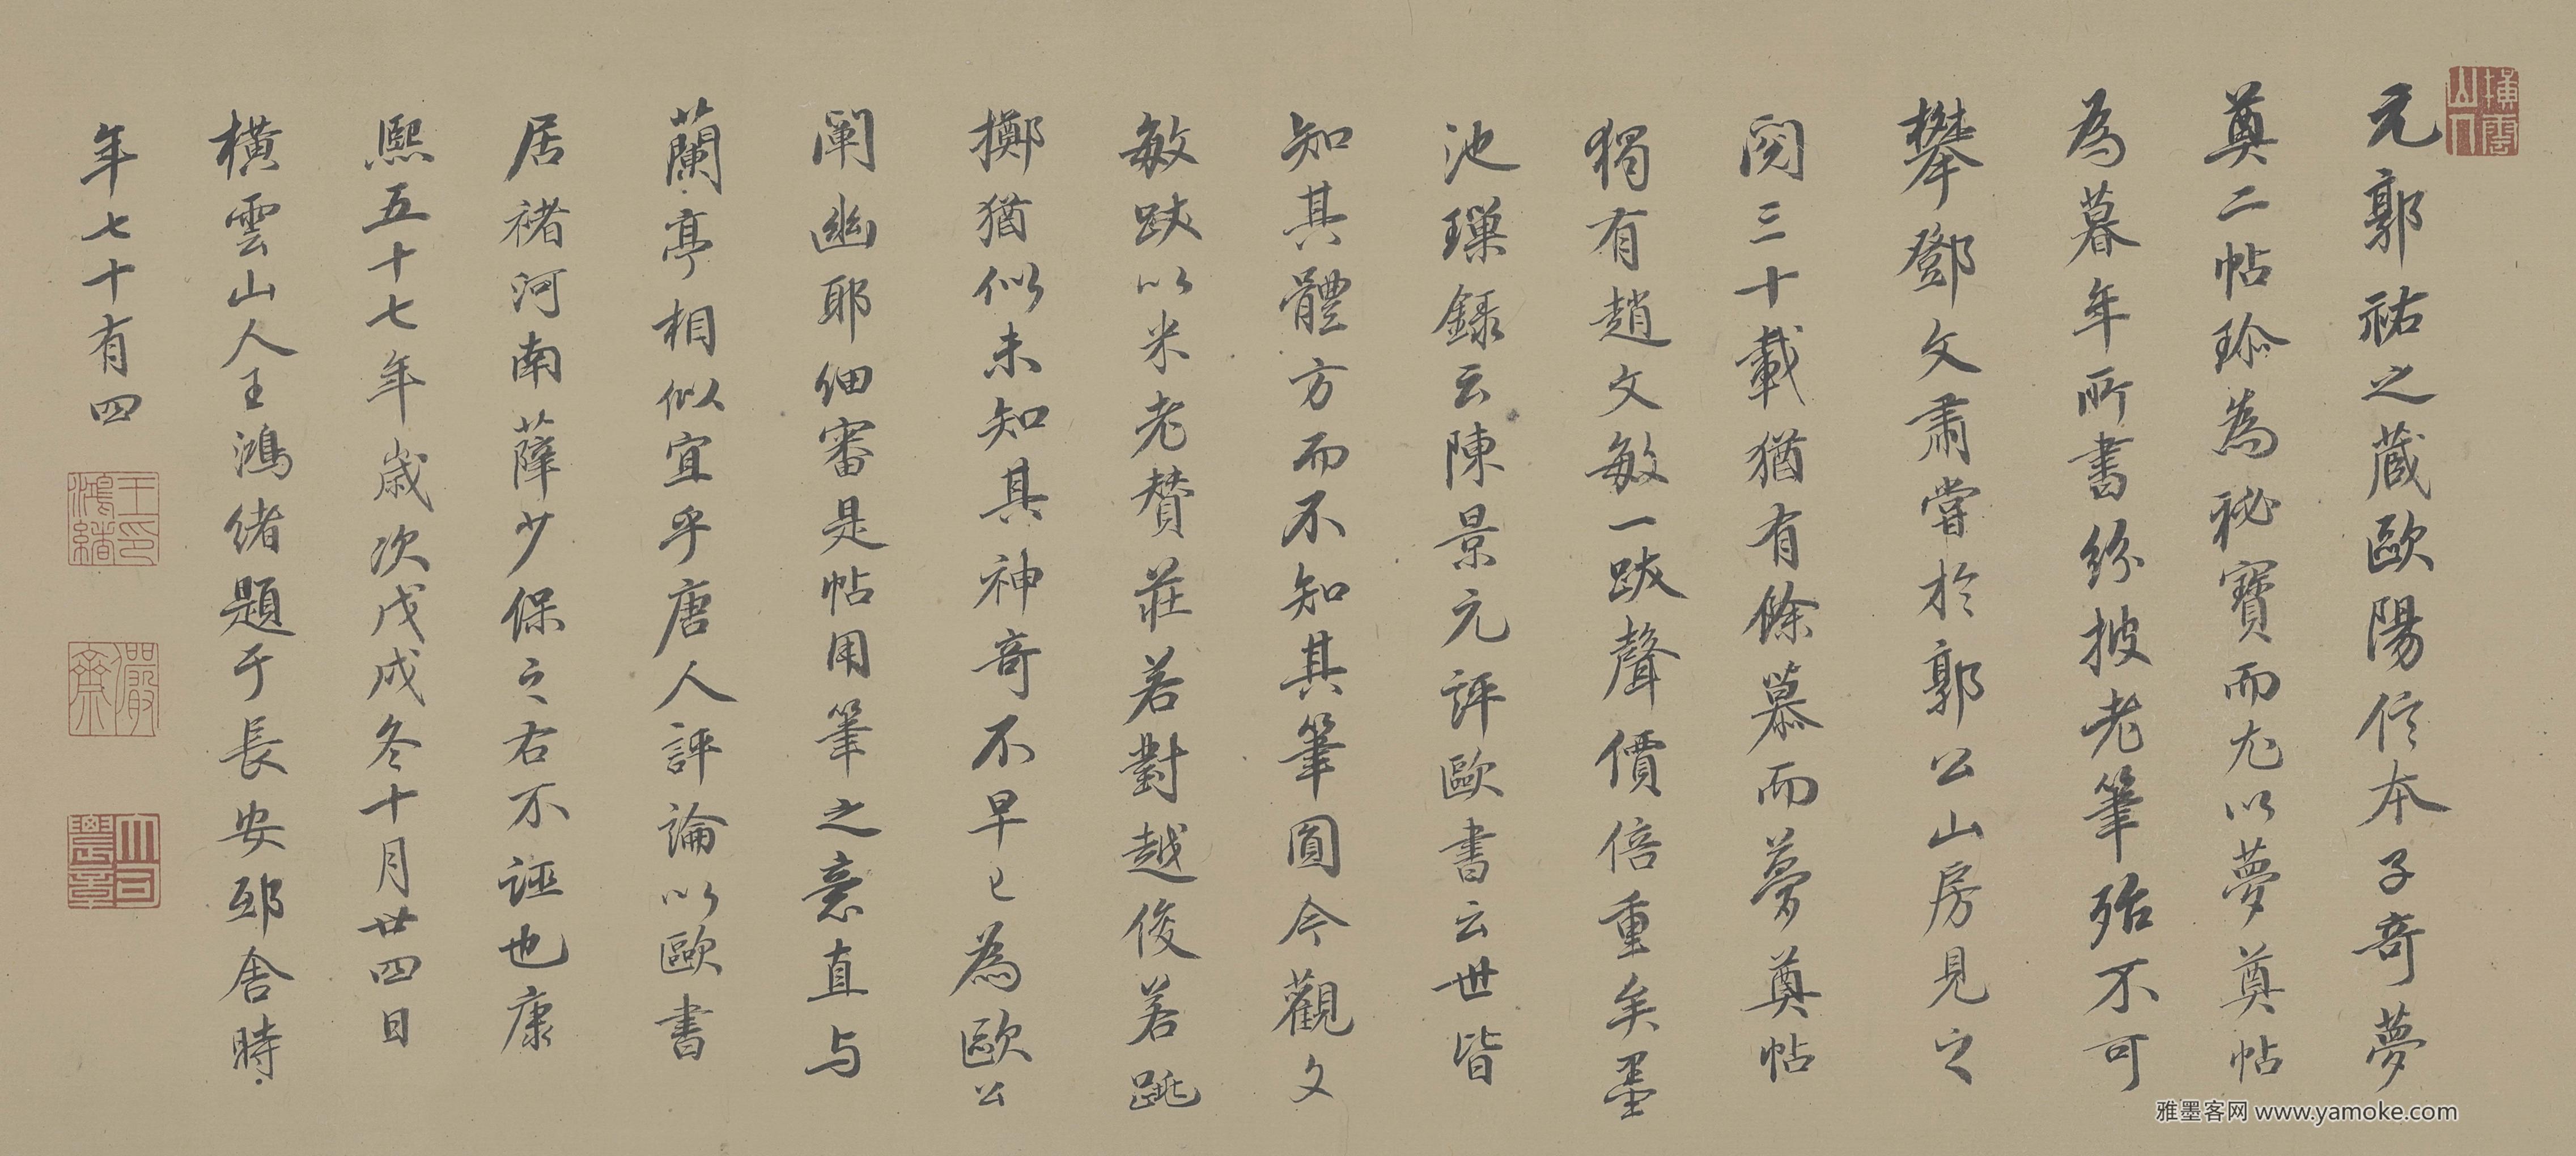 橫雲山人
元郭祐之蔵歐陽信本子奇夢
奠二帖珍為秘寶而尤以夢奠帖
為暮年所書紛披老筆殆不可
攀鄧文肅嘗於郭公山房見之
閱三十載猶有餘慕而夢奠帖
獨有趙文敏一跋聲價倍重矣墨
池璅錄云陳景元評歐書云世皆
知其體方而不知其筆圓今觀文
敏跋以米老贊莊若對越俊若跳
擲猶似未知其神奇不早已為歐公
闡幽耶細審是帖用筆之意直与
蘭亭相似宜乎唐人評論以歐書
居褚河南薛少保之右不誣也康
熙五十七年歲次戊戌冬十月廿四日
橫雲山人王鴻緒題于長安邸舍時
年七十有四
王鴻緒印
儼齋
大司農章
雅墨客网 www.yamoke.com